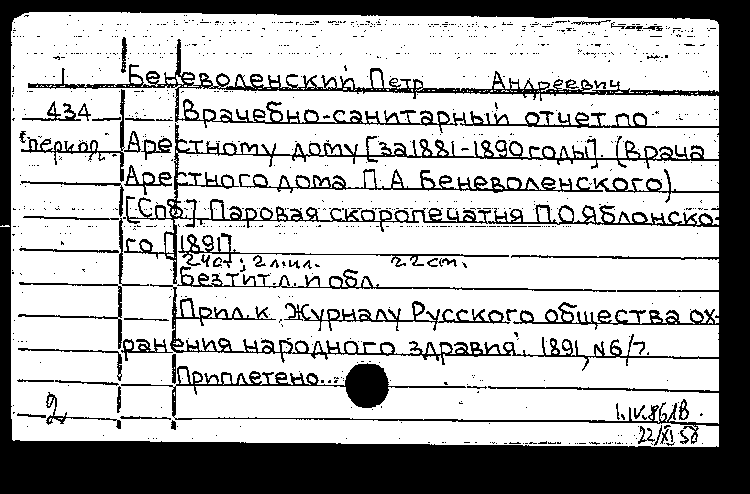 1 Беневоленский, Петр Андреевич
434 Врачебно-санитарный отчет по
"период." Арестному дому [за 1881-1890 годы]. (Врача
Арестного дома П.А. Беневоленского).
[Спб]. Паровая скоропечатня П.О.Яблонско-
го, [1891].
2 2 ст.
Без тит.л. и обл.
Прил. к "Журналу Русского общества ох-
ранения народного здравия". 1891, N 6/7.
Приплетено...
2
22/XI 58